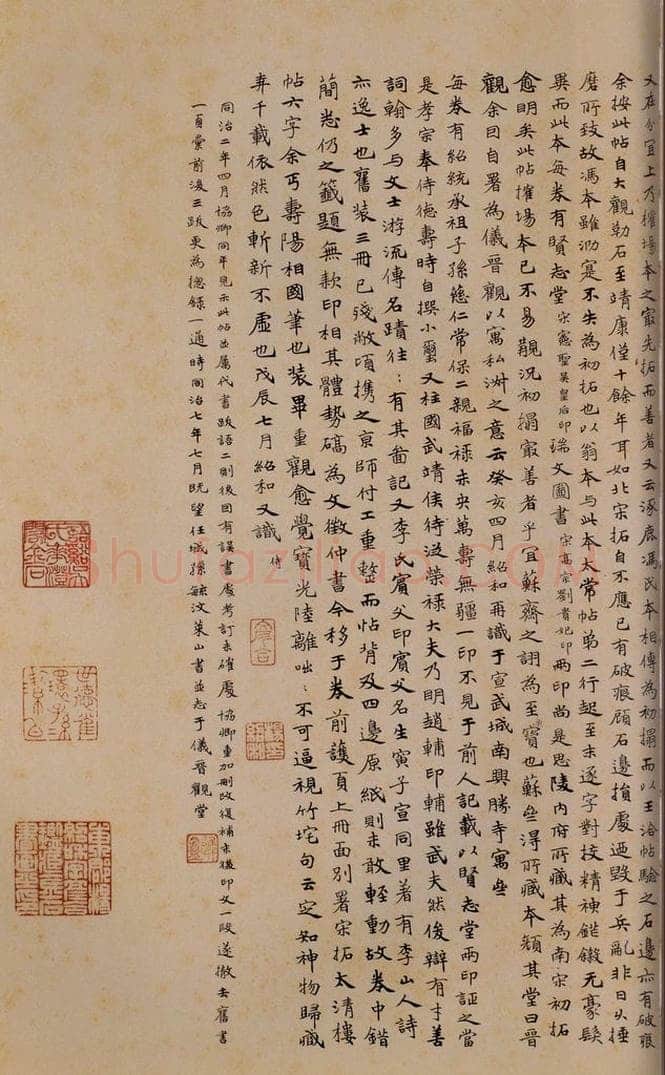 又在分宜上乃榷場本之最先拓而善者又云涿鹿馮氏本相傳為初搨而以王洽帖驗之石邊亦有破痕
余按此帖自大觀勒石至靖康僅十餘年耳如北宋拓自不應已有破痕顧石邊損處迺毀于兵亂非日久捶
磨所致故馮本雖泐寔不失為初拓也以翁本與此本太常帖弟二行起至末逐字對挍精神鋩鎩无豪髮
異而此本每券有賢志堂宋憲聖吳皇后印瑞文圖書宋高宗劉貴妃印兩印尚是思陵内府所藏其為南宋初拓
愈明矣此帖榷場本已不易覯況初搨最善者乎宜蘇齋之詡為至寶也蘇壘得所藏本顏其堂曰晉
觀余因自署為儀晉觀以寓私淑之意云癸亥四月紹和再識于宣武城南興勝寺寓壘
每券有紹統承祖子孫慈仁常保二親福禄未央萬壽無疆一印不見于前人記載以賢志堂兩印證之當
是孝宗奉侍德壽時自撰小璽又柱國武靖侯待溢榮禄大夫乃明趙輔印輔雖武夫然俊辯有才善
詞翰多与文士游流傳名蹟往:有其啚記又李氏賓父印賓父名生寅子宣同里著有李山人詩
亦逸士也舊装三冊已殘敝頃携之京師付工重整而帖背及四邊原紙則未敢輕動故券中錯
簡悉仍之籤題無款印相其體勢碻為文徵仲書今移于券前護頁上冊面别署宋拓太清樓
帖六字余丐壽陽相國筆也装畢重觀愈覺寶光陸離咄:不可逼視竹垞句云定知神物歸藏
弆千載依然色斬新不虛也戊辰七月紹和又識
同治二年四月協卿同年見示此帖並属代書跋語二則後因有誤書處考訂未確處協卿重加刪改復補未後印文一段遂撤去舊書
一頁彙前後三跋更為摠録一過時同治七年七月既望任城孫毓汶萊山書並志于儀晉觀堂
shufazidian.com